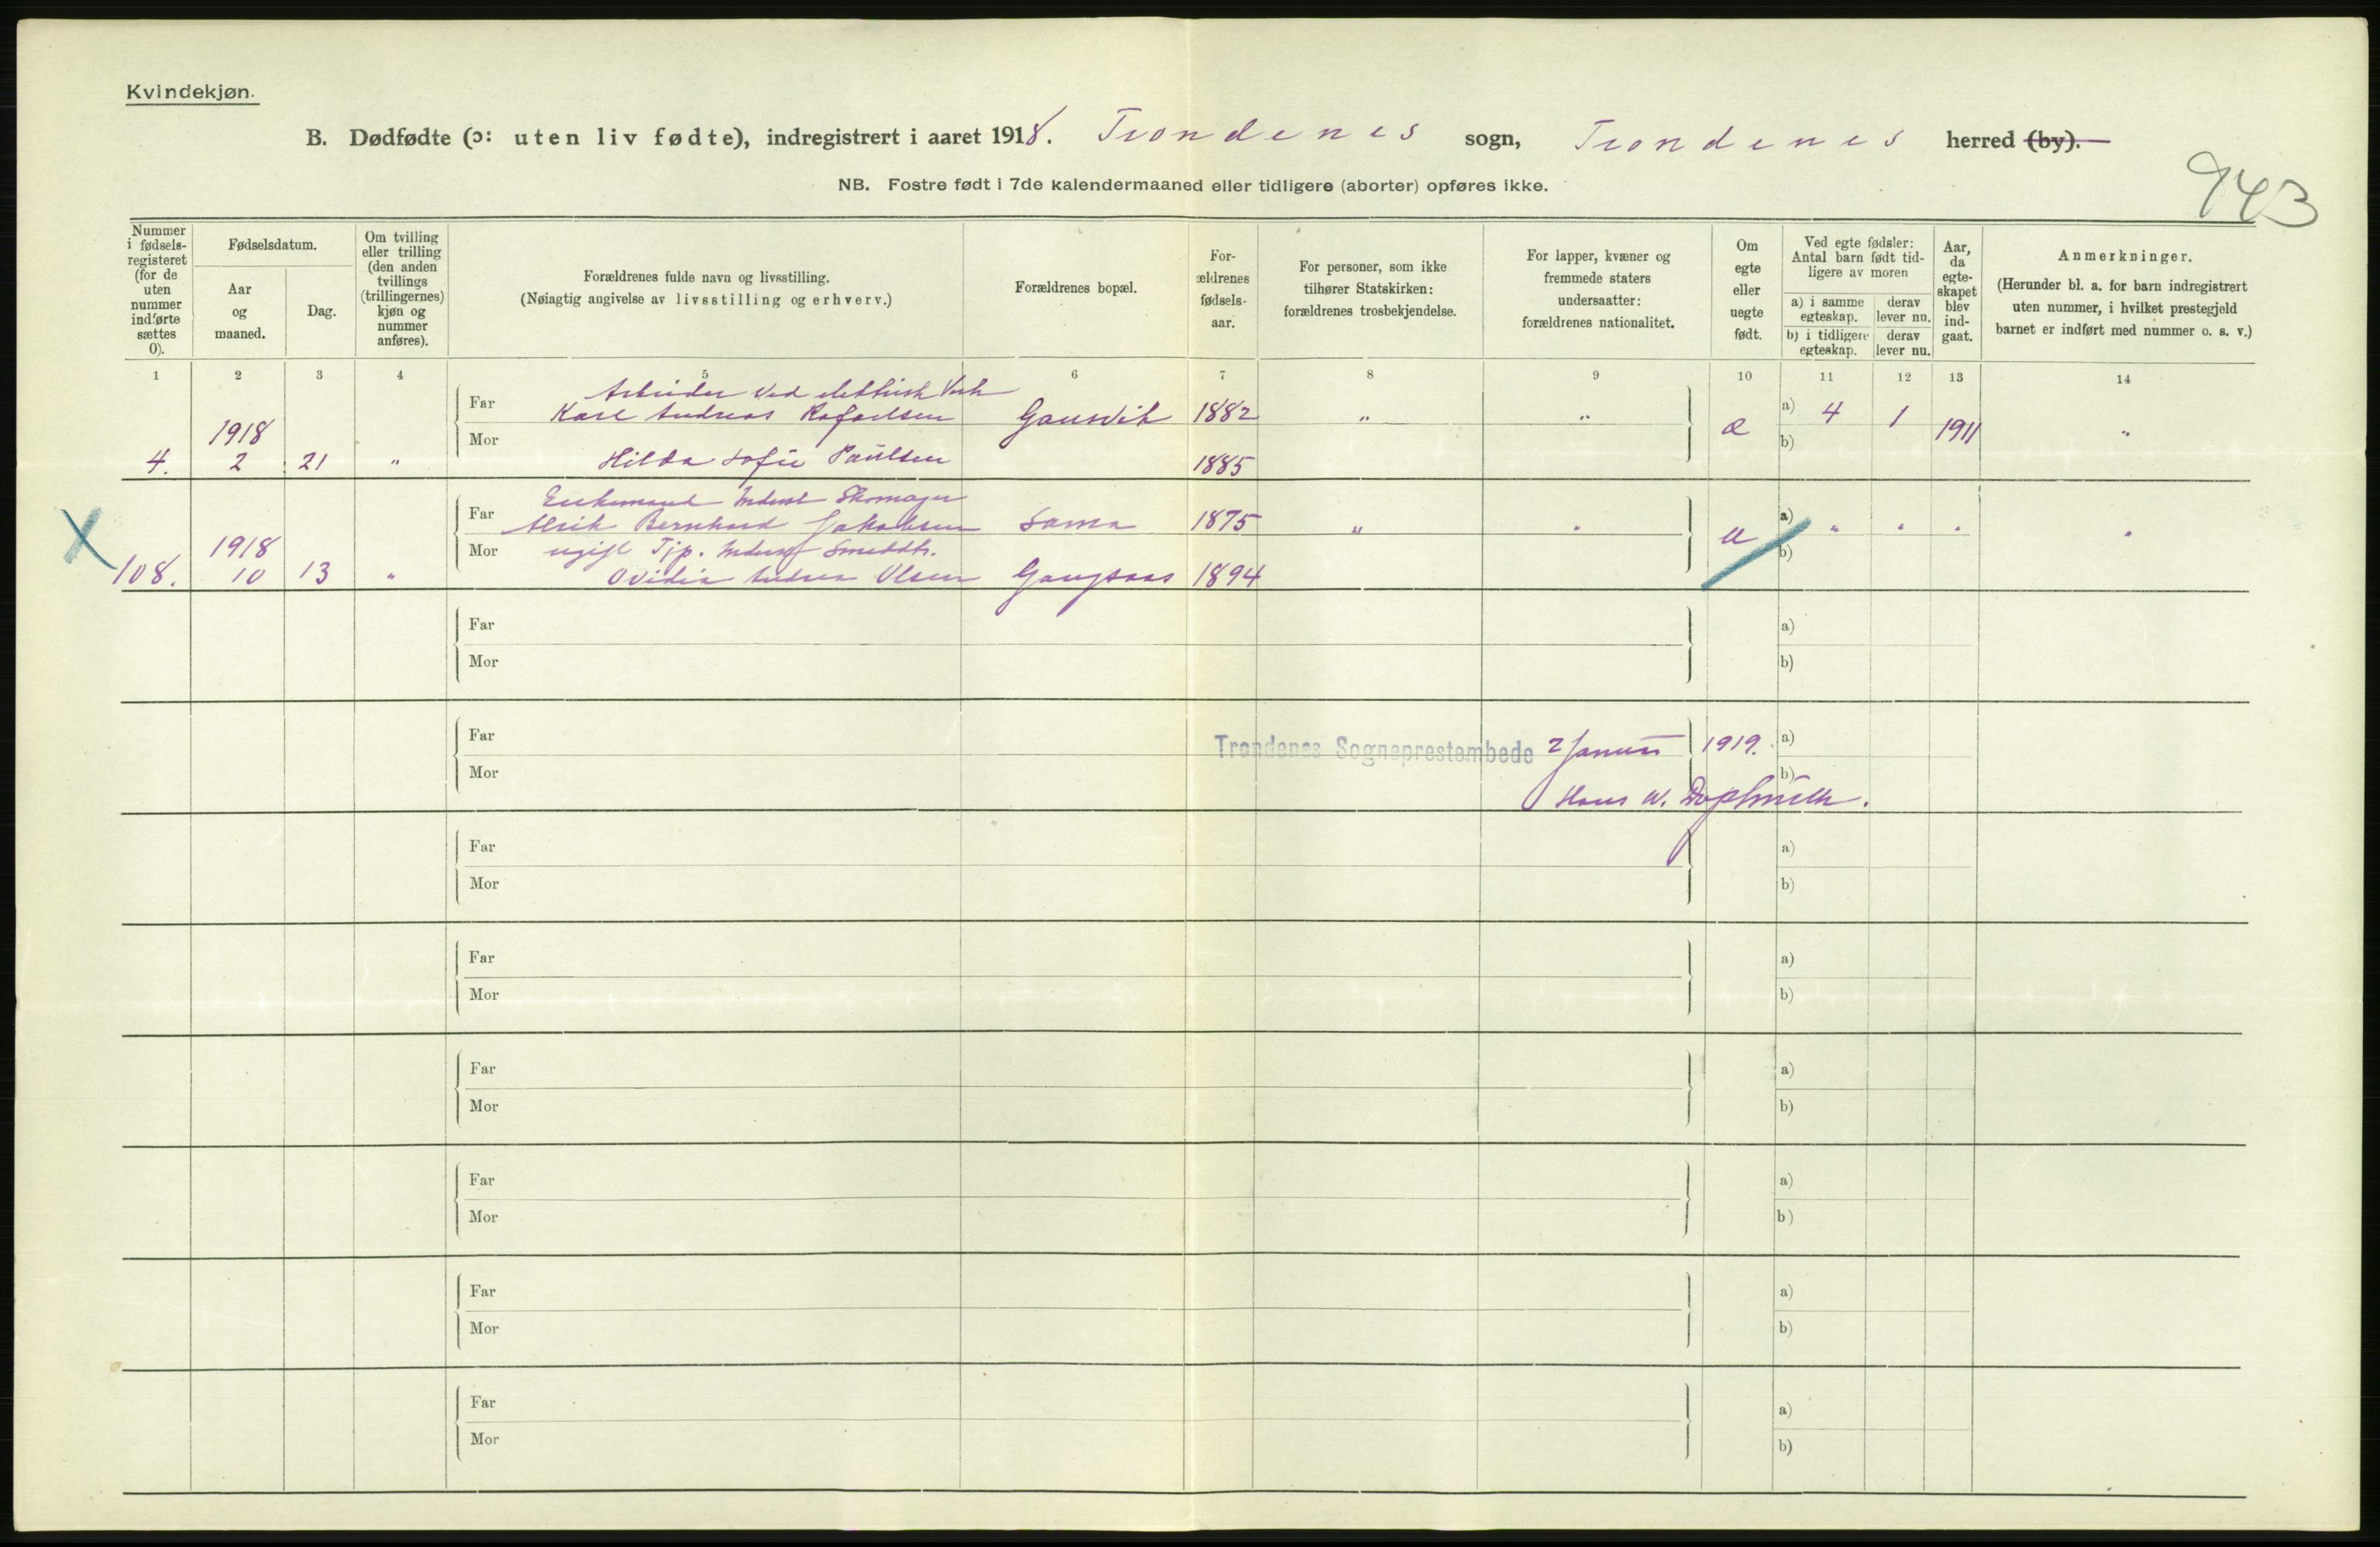 Kvindekjøn.
B. Dødfødte (ɔ: uten liv fødte), indregistrert i aaret 1918. Trondenes sogn, Trondenes herred (by).
NB. Fostre født i 7de kalendermaaned eller tidligere (aborter) opføres ikke.
943
Nummer i fødsels-registeret (for de uten nummer indførte sættes 0).
Fødselsdatum.
Aar og maaned.
Dag.
Om tvilling eller trilling (den anden tvillings (trillingernes) kjøn og nummer anføres).
Forældrenes fulde navn og livsstilling.
(Nøiagtig angivelse av livsstilling og erhverv.)
Forældrenes bopæl.
For-ældrenes fødsels-aar.
For personer, som ikke tilhører Statskirken: forældrenes trosbekjendelse.
For lapper, kvæner og fremmede staters undersaatter: forældrenes nationalitet.
Om egte eller uegte født.
Ved egte fødsler: Antal barn født tid-ligere av moren
a) i samme egteskap. derav lever nu.
b) i tidligere egteskap. derav lever nu.
Aar, da egte-skapet blev ind-gaat.
Anmerkninger.
(Herunder bl. a. for barn indregistrert uten nummer, i hvilket prestegjeld barnet er indført med nummer o. s. v.)
1 2 3 4 5 6 7 8 9 10 11 12 13 14
Arbeider ved elektrisk Verk
Far Karl Andreas Rafaelsen Gausvik 1882 " " æ a) 4 1 1911 "
1918
Mor b)
4. 2 21 " Hilda Sofie Paulsen 1885
Enkemand Indust Skomager
Far Alrik Bernhard Jakobsen Sama 1875 " " u a) " " " "
1918
Mor ugift Tjp. Indust Smeddtr. b)
X 108. 10 13 " Ovidia Andrea Olsen Gangsaas 1894
Far a)
Mor b)
Far a)
Trondenes Sogneprestembede 2 Januar 1919.
Mor b)
Hans W.
Far a)
Mor b)
Far a)
Mor b)
Far a)
Mor b)
Far a)
Mor b)
Far a)
Mor b)
Far a)
Mor b)